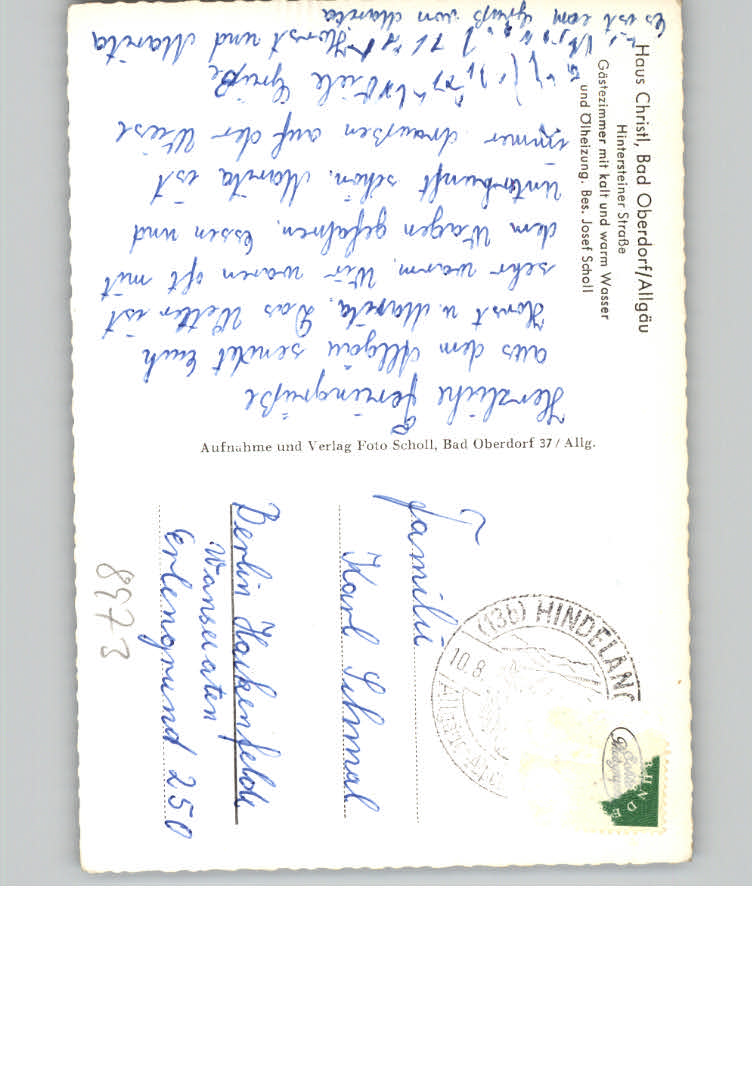 Haus Christl, Bad Oberdorf/Allgäu
Hintersteiner Straße
Gästezimmer mit kalt und warm Wasser
und Ölheizung. Bes. Josef Scholl
Herzliche Feriengrüße
aus dem Allgäu sendet Euch
Horst u. Marita. Das Wetter ist
sehr warm. Wir waren oft mit
dem Wagen gefahren. Essen und
Unterkunft schön. Marita ist
immer draußen auf der Wiese
Viele Grüße
Horst und Marita
Es ist ein Gruß von Marita
Aufnahme und Verlag Foto Scholl, Bad Oberdorf 37 / Allg.
(13b) HINDELANG
10.8.
BUNDE
Familie
Karl Schmal
Berlin Hakenfelde
Erlengrund 250
8973